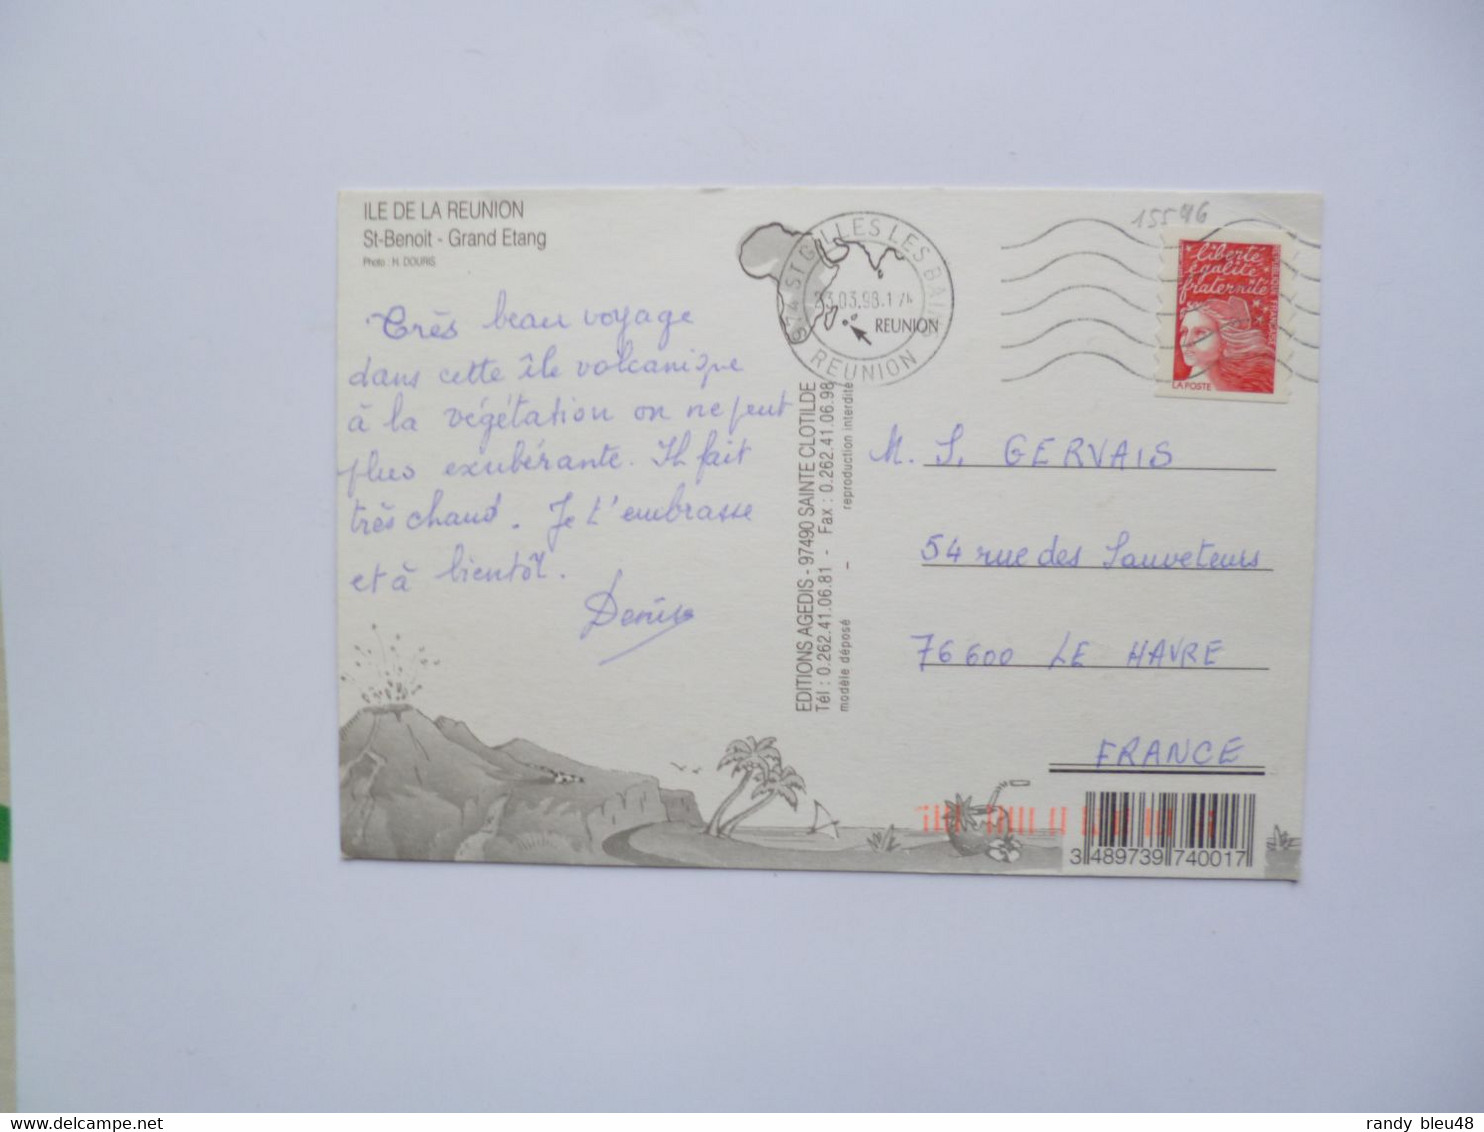 ILE DE LA REUNION
St-Benoit - Grand Etang
Photo : H. DOURIS
Très beau voyage
dans cette île volcanique
à la végétation on ne peut
plus exubérante. Il fait
très chaud. Je t'embrasse
et à bientôt.
Denise
974 ST GILLES LES BAINS
23.03.98.17H
REUNION
REUNION
15546
liberté
égalité
fraternité
LA POSTE
EDITIONS AGEDIS - 97490 SAINTE CLOTILDE
Tél : 0.262.41.06.81 - Fax : 0.262.41.06.98
modèle déposé – reproduction interdite
M. S. GERVAIS
54 rue des Sauveteurs
76600 LE HAVRE
FRANCE
3 489739 740017
randy bleu48